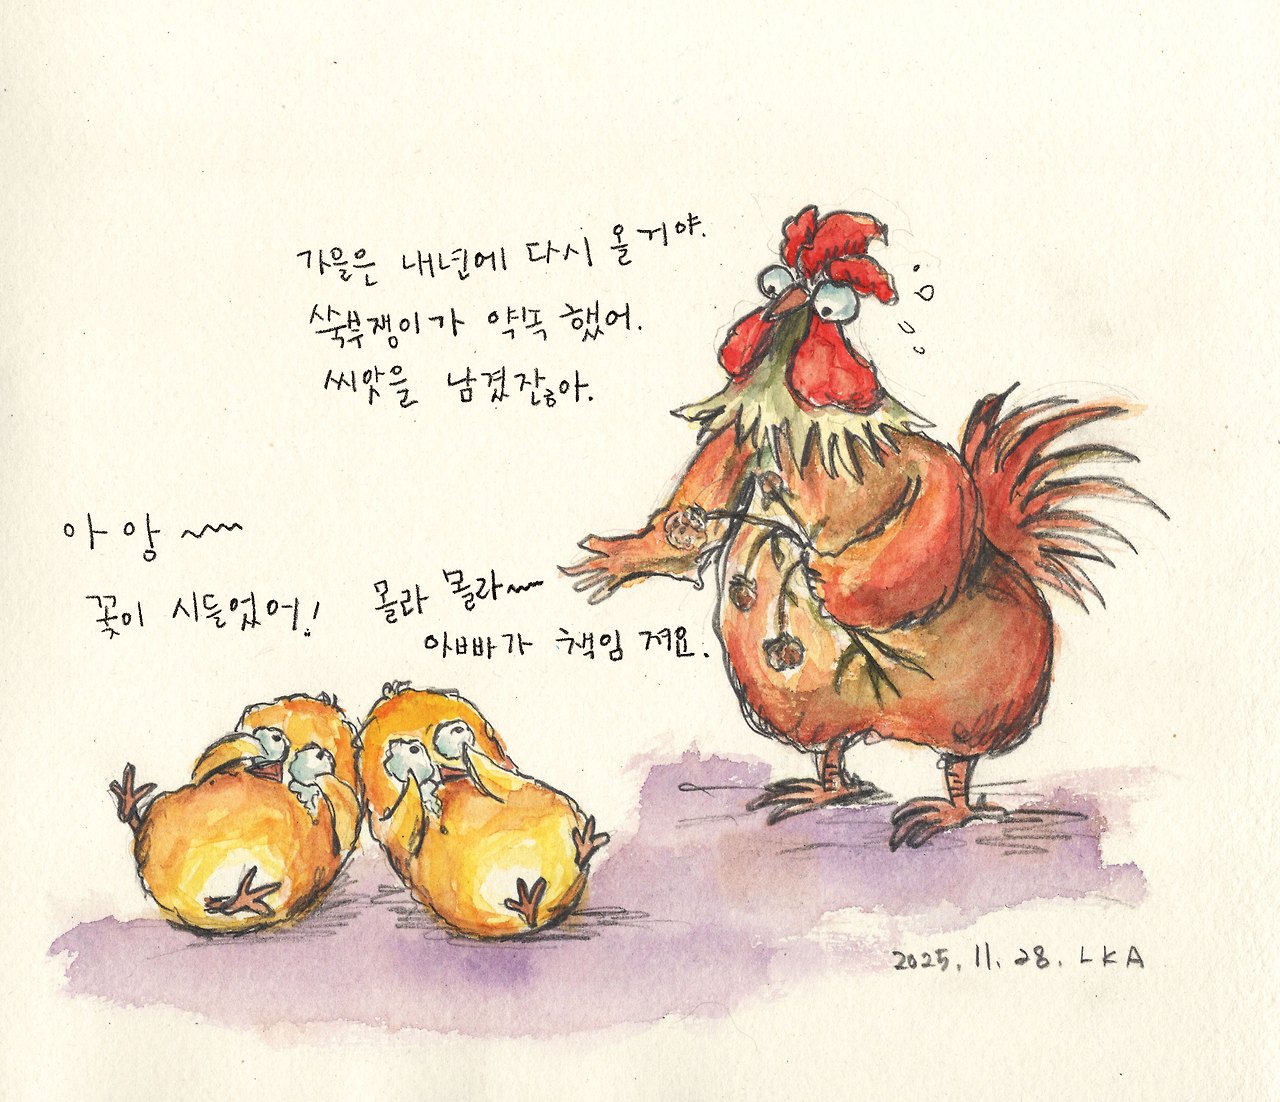 가을은 내년에 다시 올거야.
쑥부쟁이가 약속 했어.
씨앗을 남겼잖아.
아앙~~
꽃이 시들었어!
몰라 몰라~~
아빠가 책임 져요.
2025. 11. 28. LKA